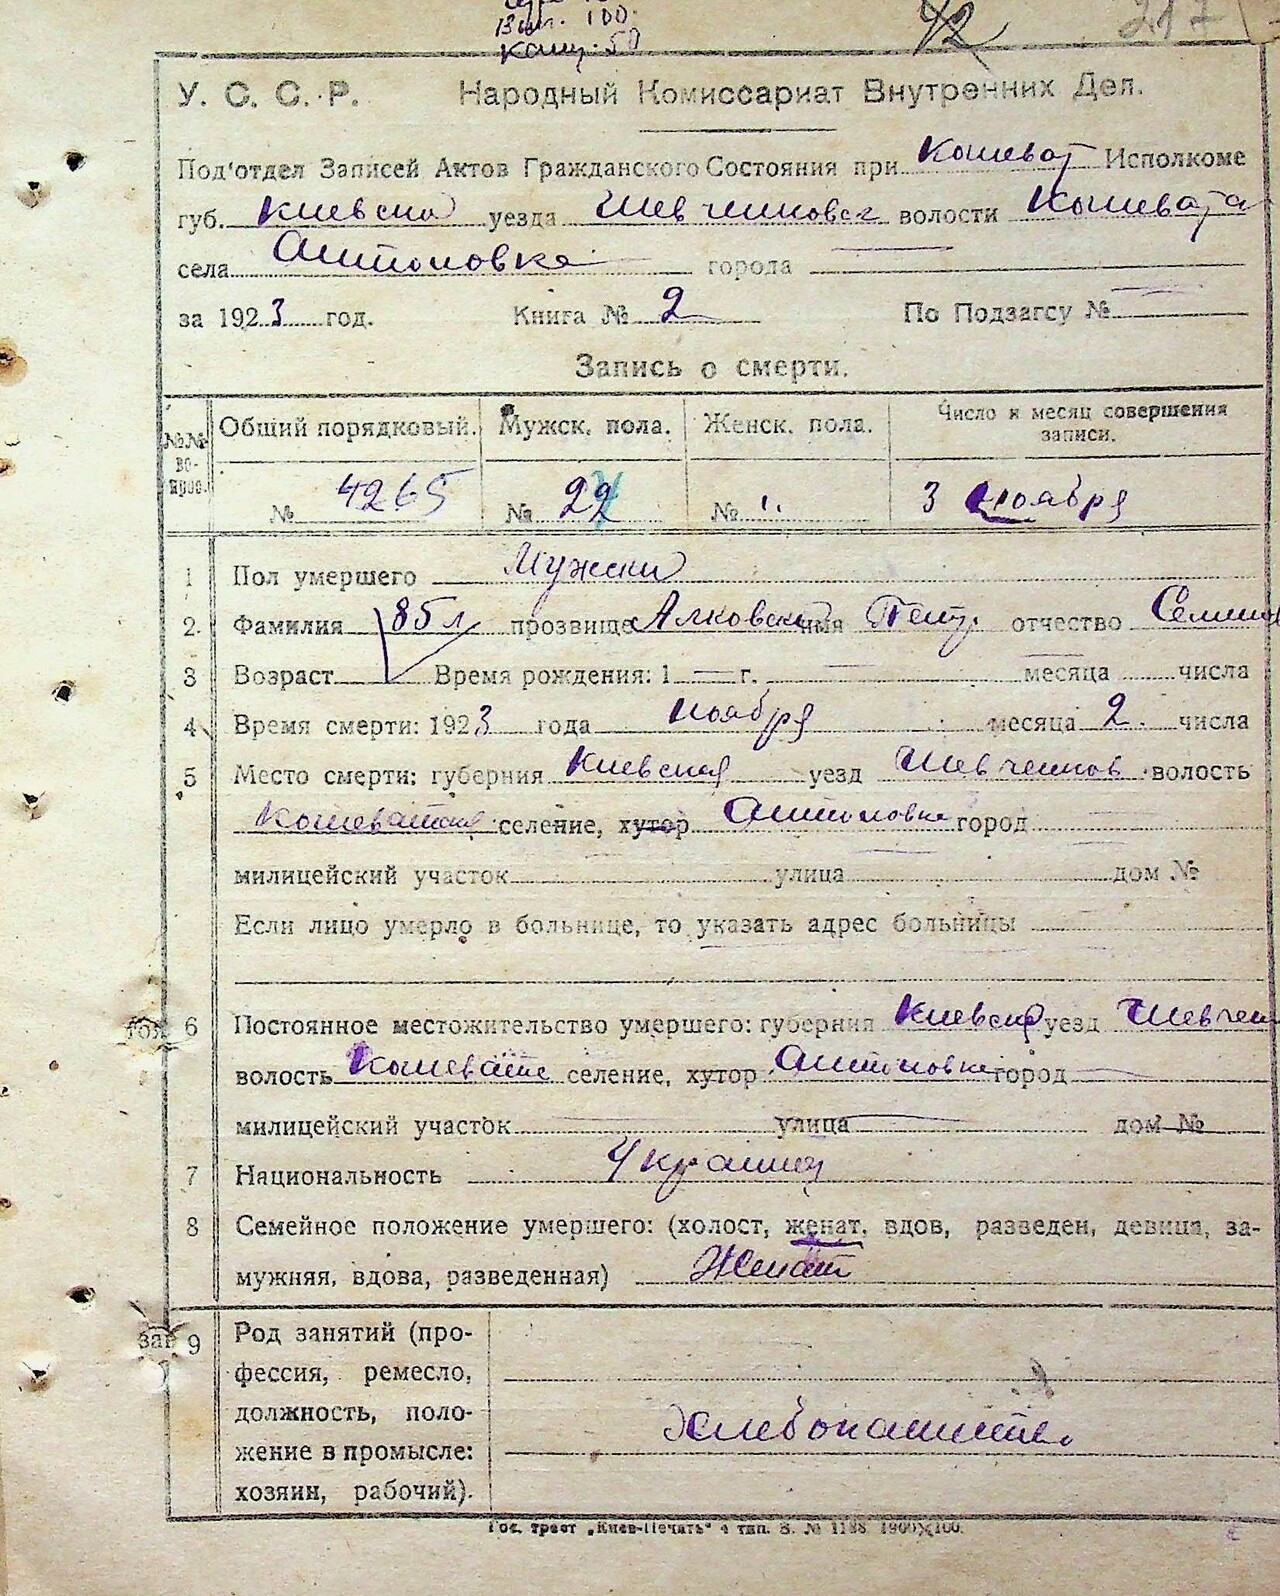 Вил. 100.
Кош. 50
42
217
У. С. С. Р. Народный Комиссариат Внутренних Дел.
Под'отдел Записей Актов Гражданского Состояния при Кошеват Исполкоме
губ. Киевско уезда Шевченковск волости Кошевата
села Антоновка города
за 1923 год. Книга № 2 По Подзагсу №
Запись о смерти.
№№ во-прос. Общий порядковый. Мужск. пола. Женск. пола. Число и месяц совершения записи.
№ 4265 № 22 № ". 3 ноября
1 Пол умершего Мужски
2. Фамилия 85 л прозвище Алковски имя Петр. отчество Семенов
3 Возраст Время рождения: 1 — г. месяца числа
4 Время смерти: 1923 года ноября месяца 2. числа
5 Место смерти: губерния Киевская уезд Шевченков волость
Кошеватская селение, хутор Антоновка город
милицейский участок улица дом №
Если лицо умерло в больнице, то указать адрес больницы
6 Постоянное местожительство умершего: губерния Киевска уезд Шевчен
волость Кошеватс селение, хутор Антоновка город
милицейский участок улица дом №
7 Национальность Украинец
8 Семейное положение умершего: (холост, женат, вдов, разведен, девица, за-
мужняя, вдова, разведенная) Женат
9 Род занятий (про-
фессия, ремесло,
должность, поло- Хлебопашество
жение в промысле:
хозяин, рабочий).
Гос. трест „Киев-Печать" 4 тип. З. № 1188. 1900×100.